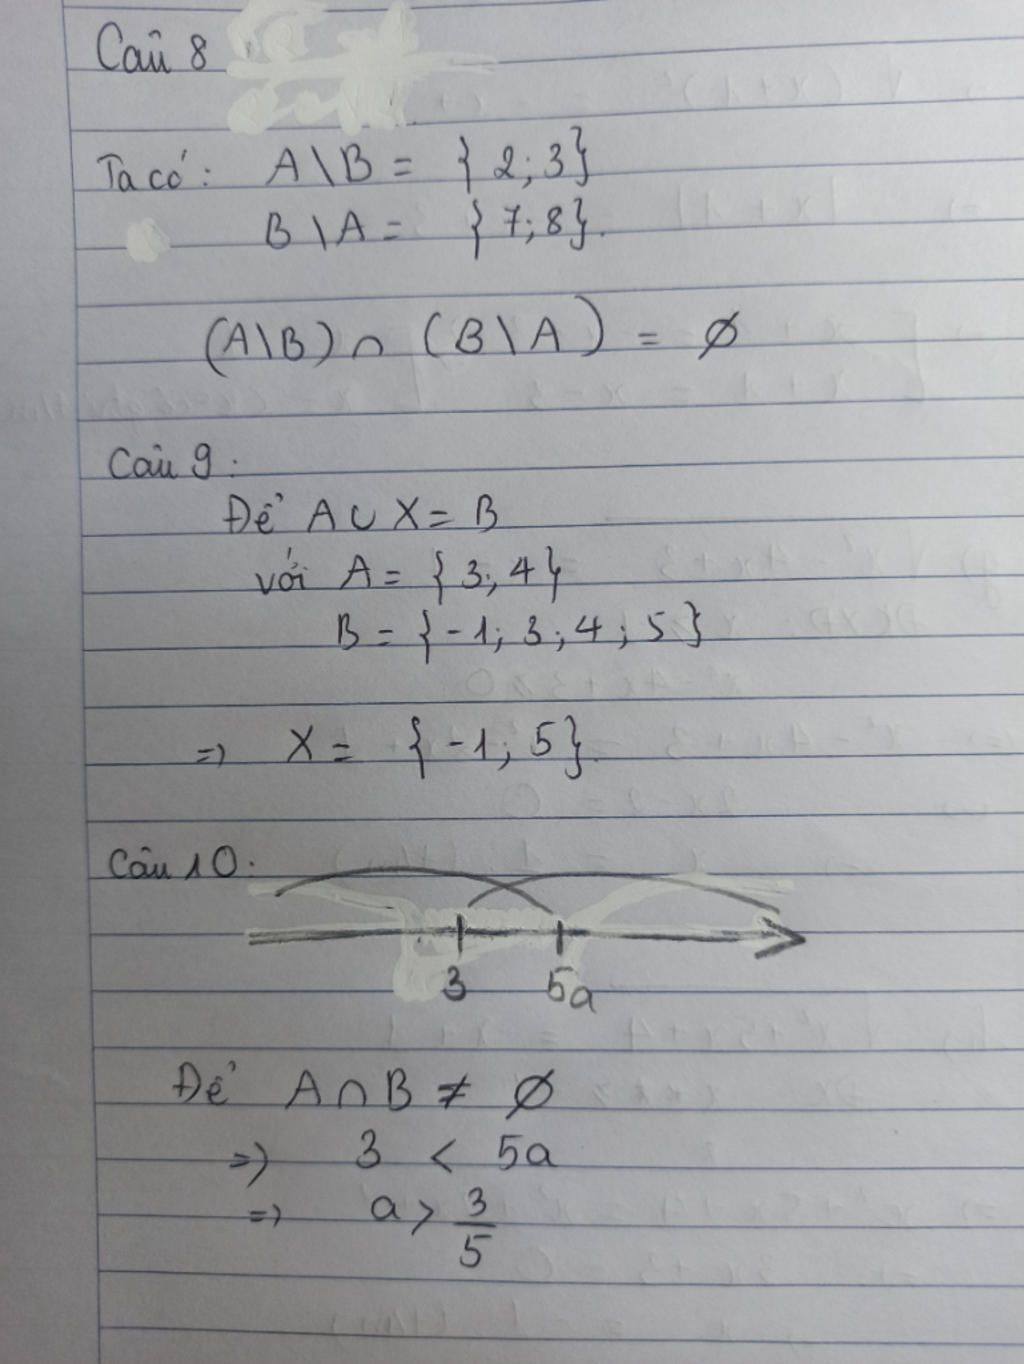 Câu 8
Ta có: A\B = {2; 3}
B\A = {7; 8}.
(A\B) ∩ (B\A) = ∅
Câu 9:
Để A ∪ X = B
với A = {3; 4}
B = {-1; 3; 4; 5}
=> X = {-1; 5}.
Câu 10:
3 5a
Để A ∩ B ≠ ∅
=> 3 < 5a
=> a > 3/5